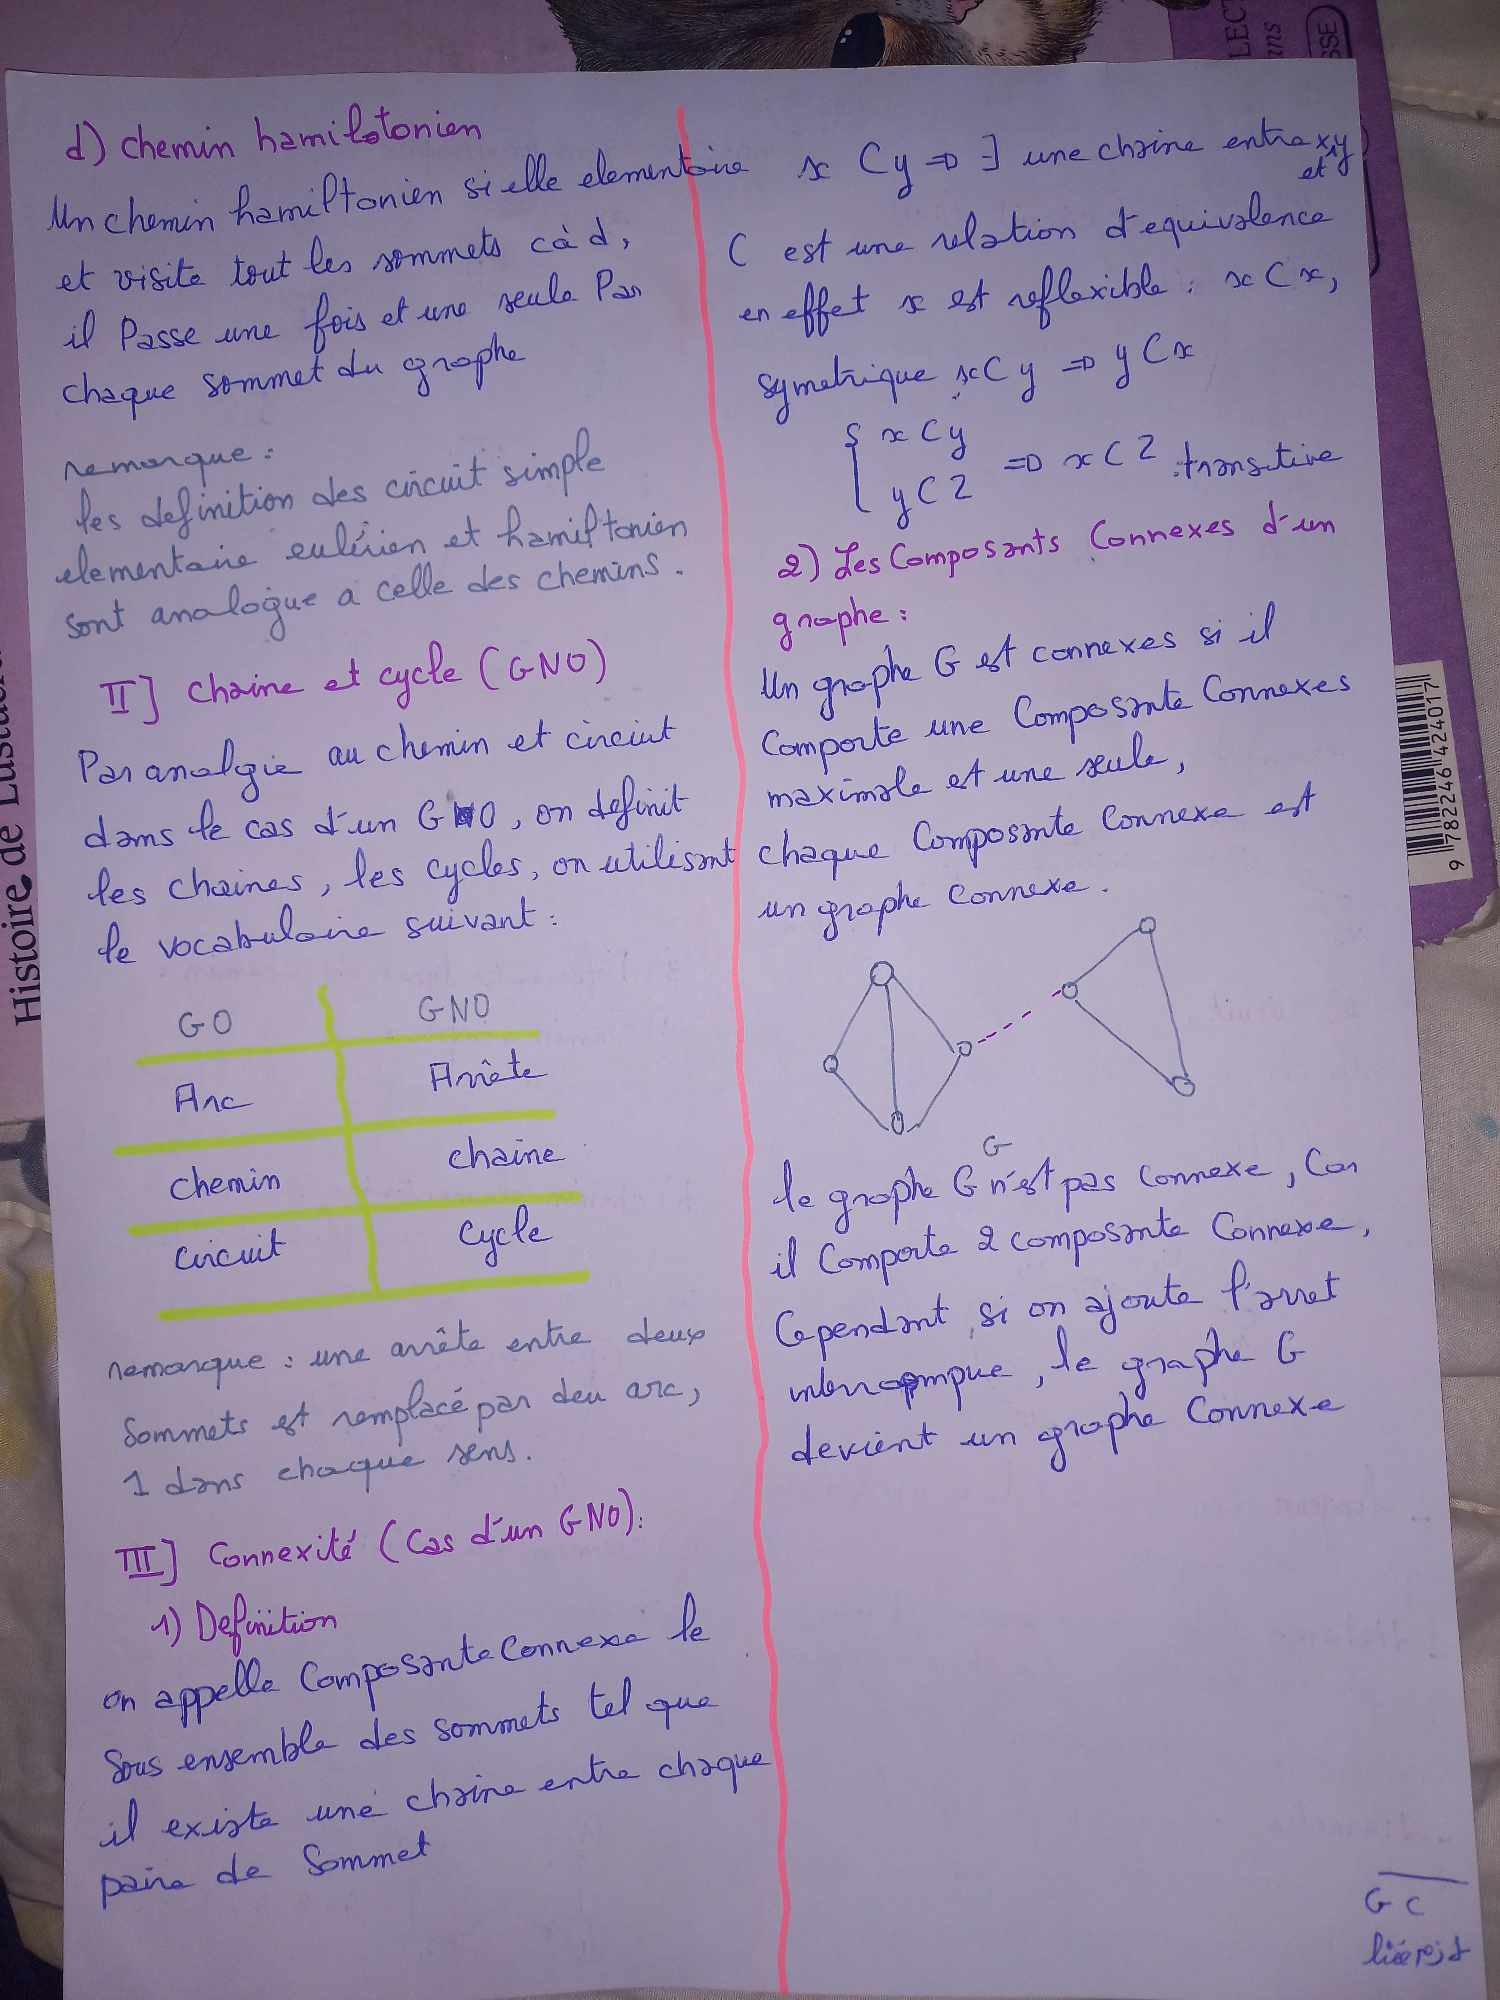 d) chemin hamilotonien
Un chemin hamiltonien si elle elementaire
et visite tout les sommets càd,
il Passe une fois et une seule Par
chaque sommet du graphe
remarque :
les definition des circuit simple
elementaire eulérien et hamiltonien
sont analogue a celle des chemins.
II] chaine et cycle (GNO)
Par analgie au chemin et circiut
dans le cas d'un GNO, on definit
les chaines, les cycles, on utilisant
le vocabulaire suivant :
GO GNO
Arc Arrête
chemin chaine
circuit cycle
remarque : une arrête entre deux
sommets est remplacé par deu arc,
1 dans chaque sens.
III] Connexité (Cas d'un GNO):
1) Definition
on appelle Composante Connexe le
sous ensemble des sommets tel que
il existe une chaine entre chaque
paire de Sommet
x C y => ∃ une chaine entre x,y
et
C est une relation d'equivalence
en effet x est reflexible : x C x,
symetrique x C y => y C x
{ x C y
y C Z => x C Z transitive
2) Les Composants Connexes d'un
graphe :
Un graphe G est connexes si il
Comporte une Composante Connexes
maximale et une seule,
chaque Composante Connexe est
un graphe Connexe.
G
le graphe G n'est pas Connexe, Car
il Comporte 2 composante Connexe,
Cependant, si on ajoute l'arret
interrompue, le graphe G
devient un graphe Connexe
G C
Histoire de
9 782246 424017